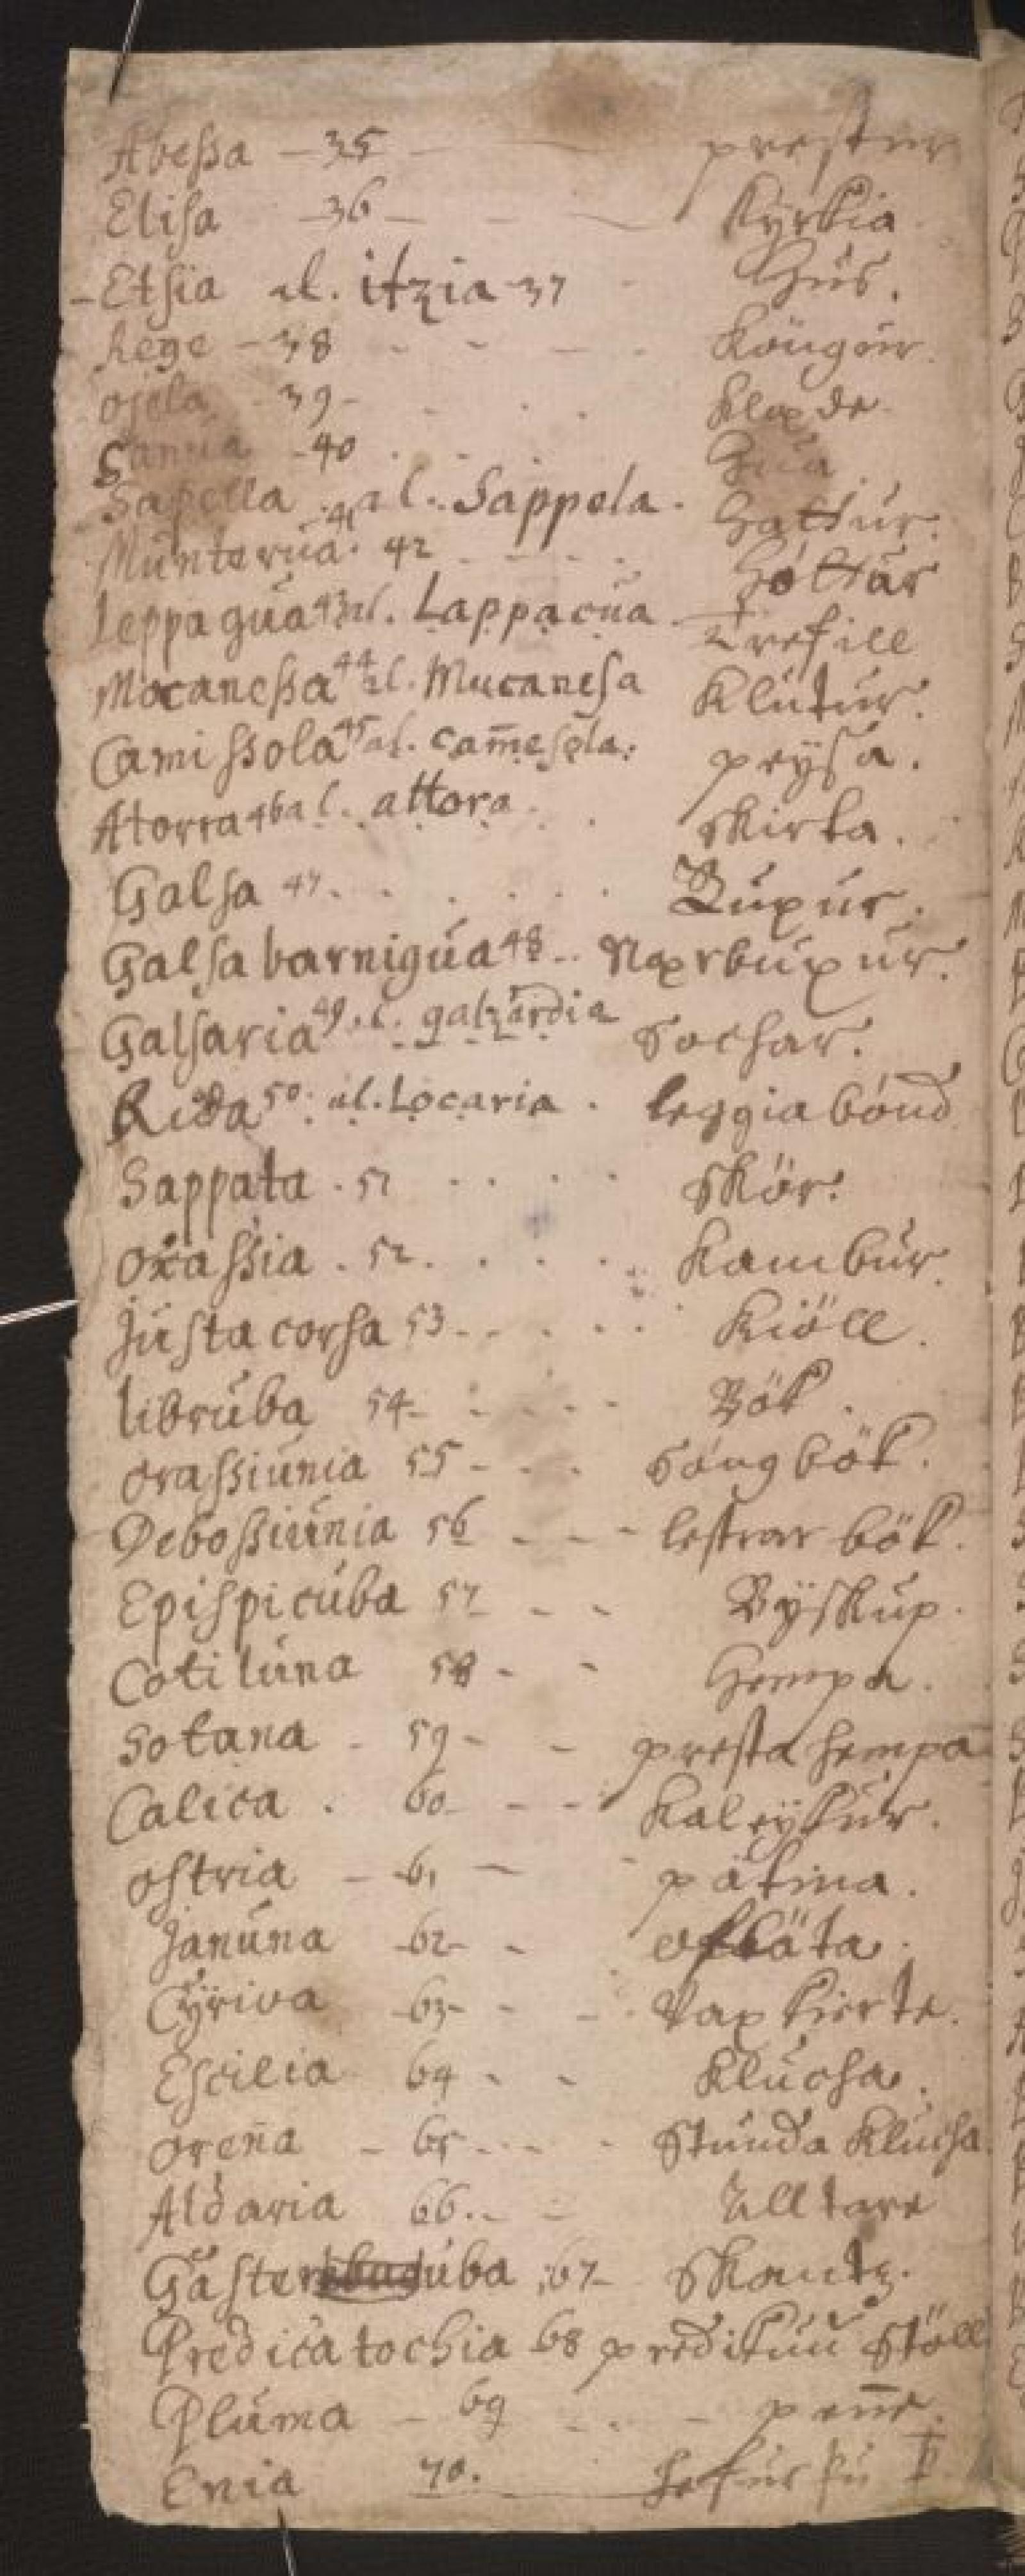 Abeßa – 35 – prestur
Elisa – 36 – – Kyrkia
– Etsia al. itzia 37 – Hús.
Rege – 38 – – – – Köngúr.
ojela – 39 – . . . Klæde
Ganúa – 40 . . . Húa
Sapella . 41 al. Sappela . Hattúr.
Múnterúa. 42 – – . . Hóttúr
leppagúa 43 al. Lappacúa . Trefill
Mocaneßa 44 al. Mucanesa Klútúr.
Camißola 45 al. cam̅esola. peysa.
Atorra 46 al. attora . . skirta.
Galsa 47 . . . . . . Búxúr.
Galsa barnigúa 48 – . Nærbúxúr.
Galsaria 49 al. galzardia Sochar.
Rida 50 . al. Locaria . leggiabónd
Sappata . 51 . . . . skór.
oxaßia . 52 . . . . . Kambúr.
Jústa corsa 53 – . . . . Kióll.
librúba 54 – . . . . Bók.
oraßiúnia 55 – . . Sóngbók.
Deboßiúnia 56 – – – lestrar bók.
Epispicúba 57 – – Byskúp.
Cotilúna 58 – – Hempa.
Sotana – 59 – – presta hempa
Calica . 60 – – – Kaleykúr.
ostria – 61 – – pátina.
Janúna – 62 – – ofláta.
Cÿriva – 63 – – Vax kierte.
Escilia 64 – – Klúcha.
oreña – 65 – . . . Stúnda Klucha
Aldaria 66 . – – Alltare
Gasterúba 67 – Skantz.
Predicatochia 68 predikún Stóll
Plúma – 69 – . – pen̅e.
Enia 70. – hefúr þú